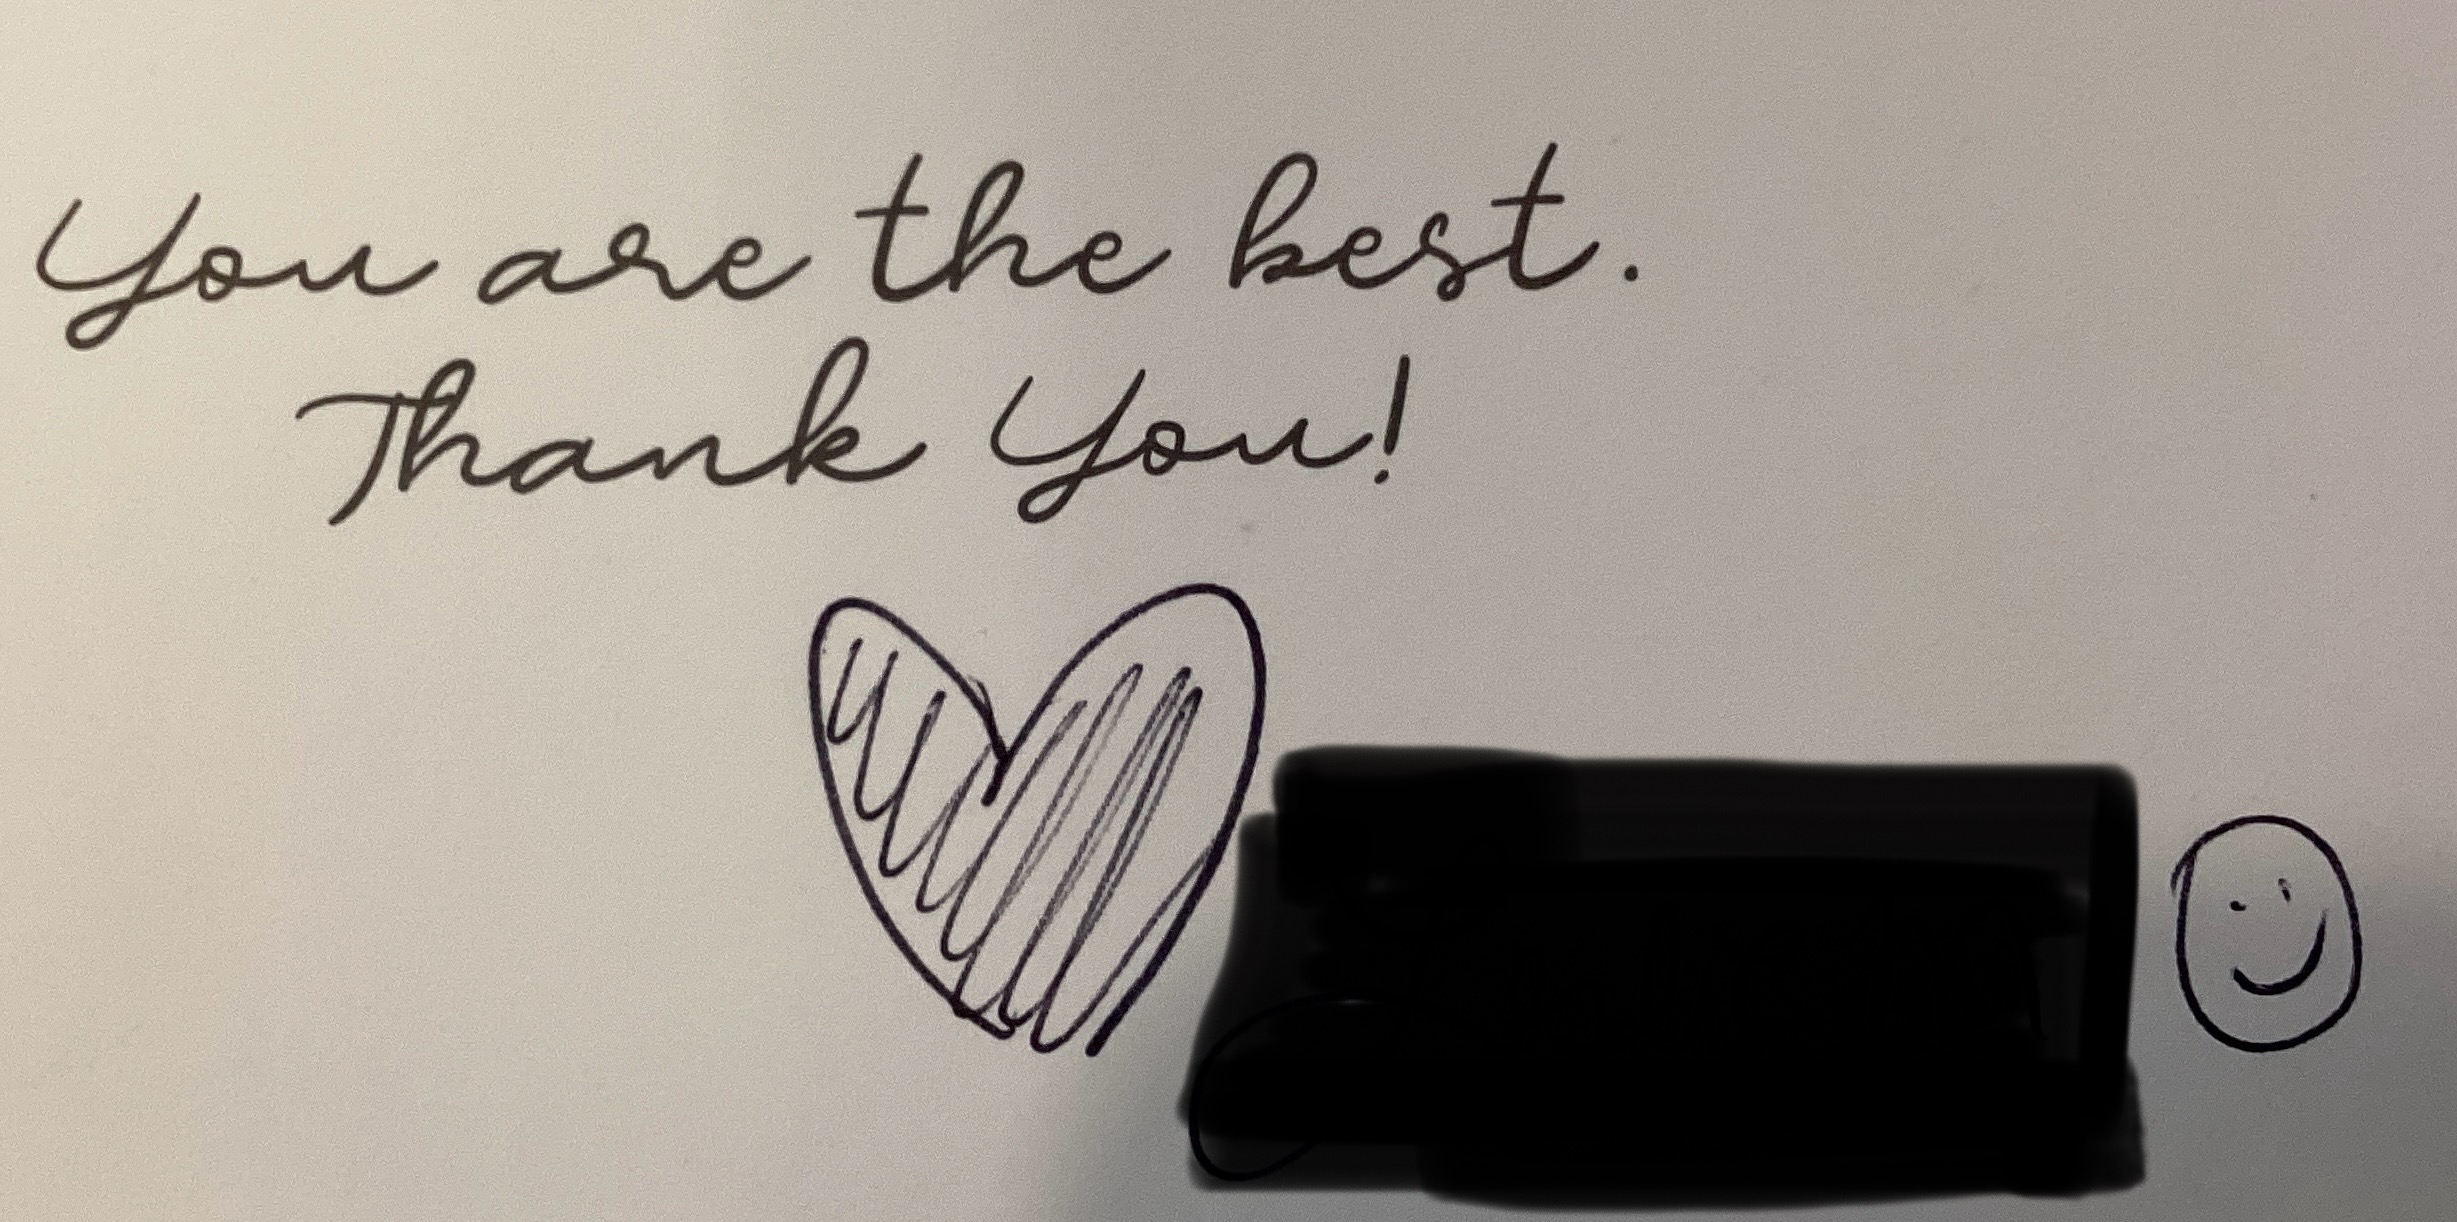 You are the best.
Thank You!